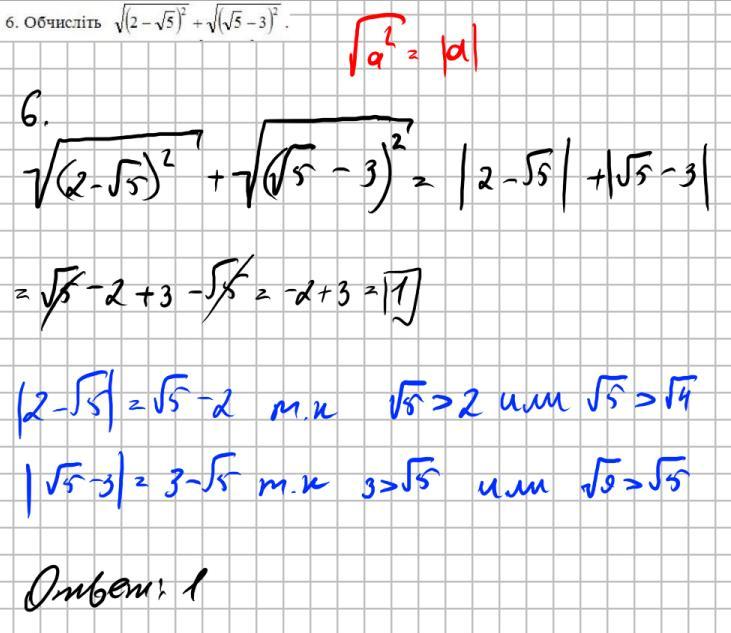 6. Обчисліть √(2 − √5)² + √(√5 − 3)² .
√a² = |a|
6.
√(2 − √5)² + √(√5 − 3)² = |2 − √5| + |√5 − 3|
= √5 − 2 + 3 − √5 = −2 + 3 = 1
|2 − √5| = √5 − 2 т.к √5 > 2 или √5 > √4
|√5 − 3| = 3 − √5 т.к 3 > √5 или √9 > √5
Ответ: 1